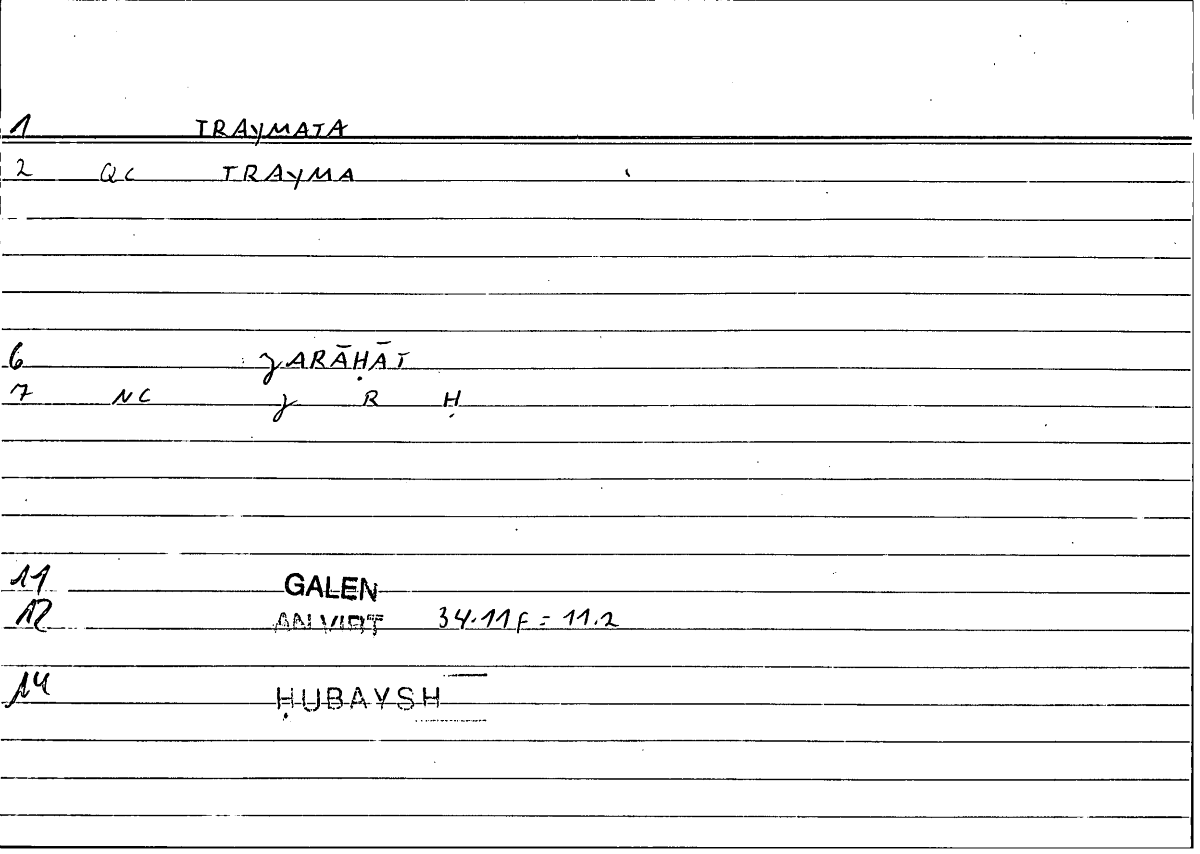 1 TRAYMATA
2 QC TRAYMA
6 ȜARĀḤĀT
7 NC Ȝ R Ḥ
11 GALEN
12 AN VIRT 34.11f = 11.2
14 ḤUBAYSH